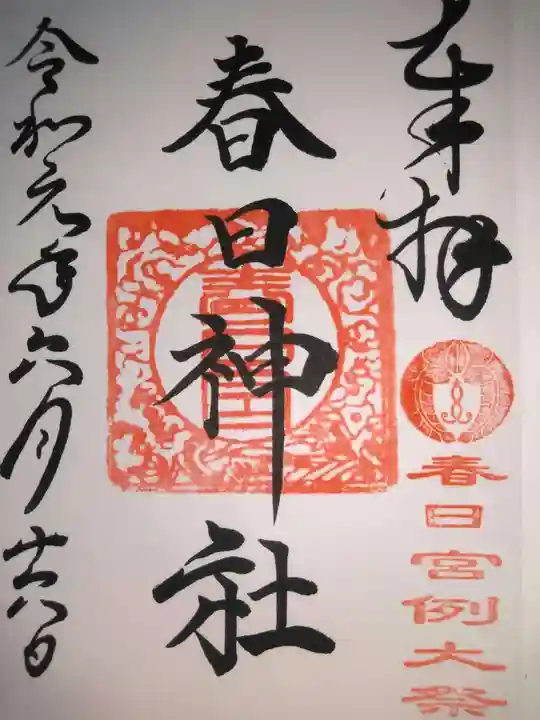 奉拝
春日宮例大祭
春日神社
令和元年六月廿六日